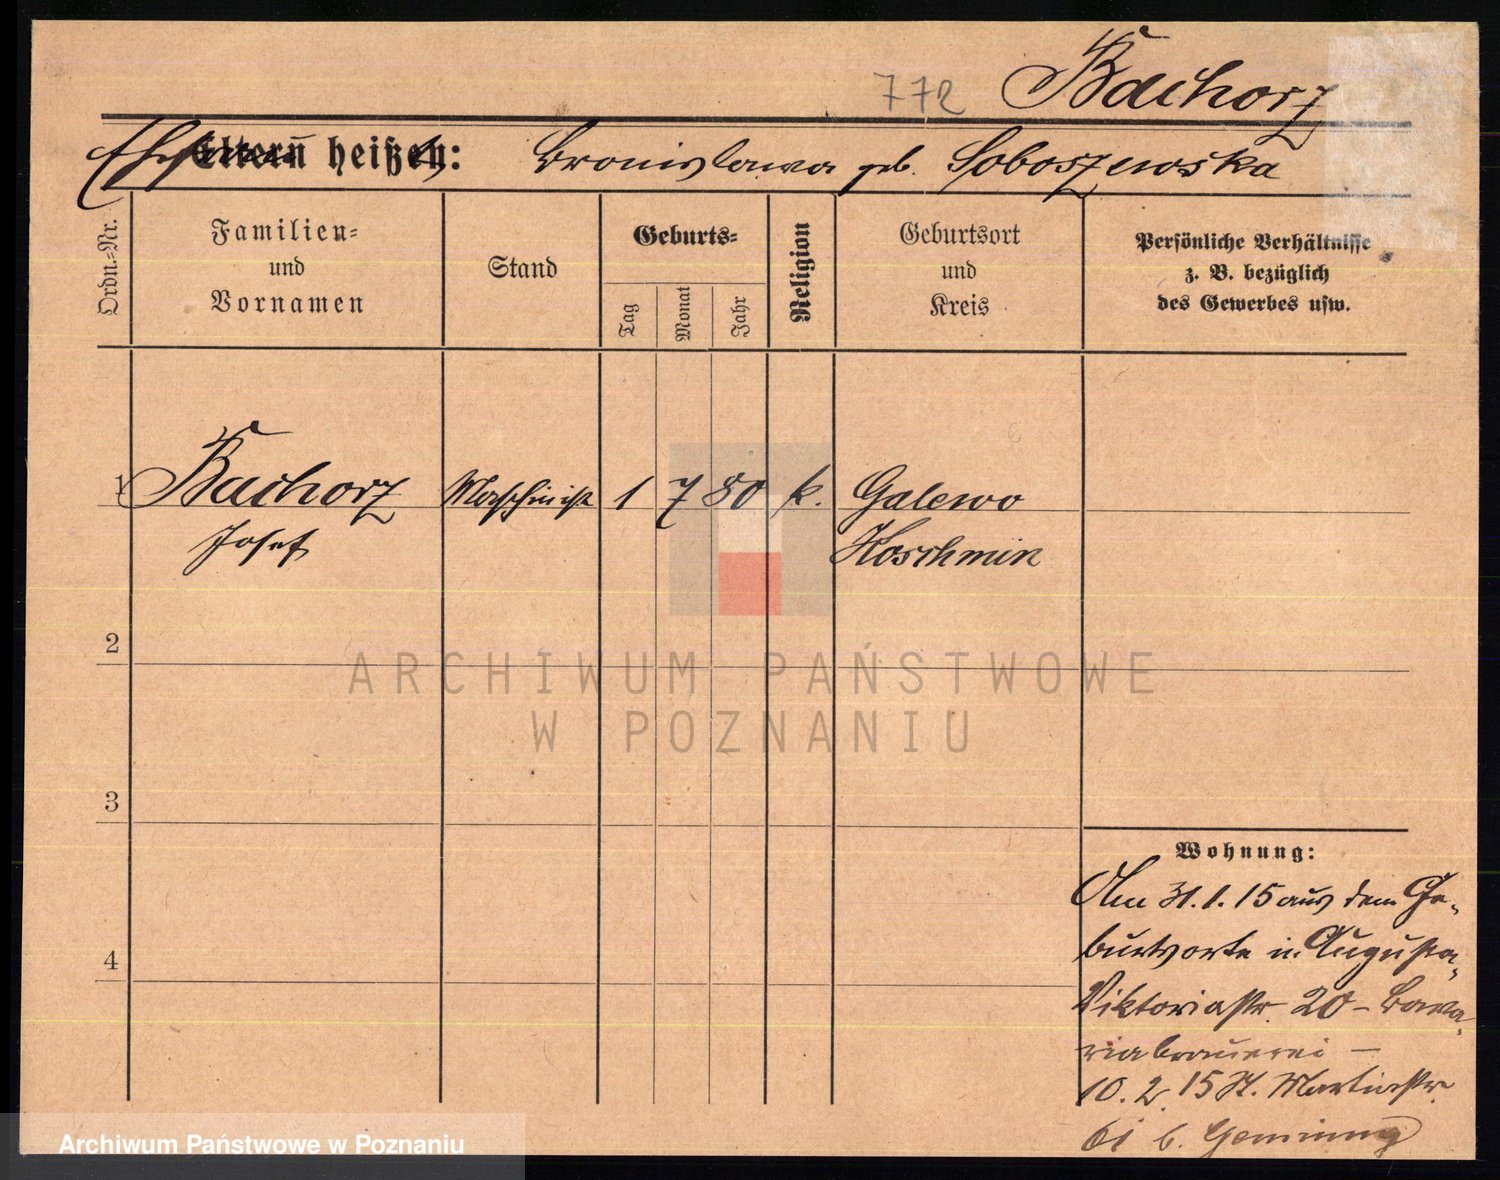 772 Bachorz
Ehefrau heißt: Bronislawa geb. Soboszewska
Ordn.-Nr.
Familien-
und
Vornamen
Stand
Geburts-
Tag
Monat
Jahr
Religion
Geburtsort
und
Kreis
Persönliche Verhältnisse
z. B. bezüglich
des Gewerbes usw.
1 Bachorz Maschinist 1 7 80 k. Galewo
Josef Koschmin
2
ARCHIWUM PAŃSTWOWE
W POZNANIU
3
4
Wohnung:
Am 31.1.15 aus dem Ge-
burtsorte in Augusta-
Viktoriastr. 20 - Bava-
riabrauerei -
10. 2. 15 St. Martinstr.
61 b.
Archiwum Państwowe w Poznaniu